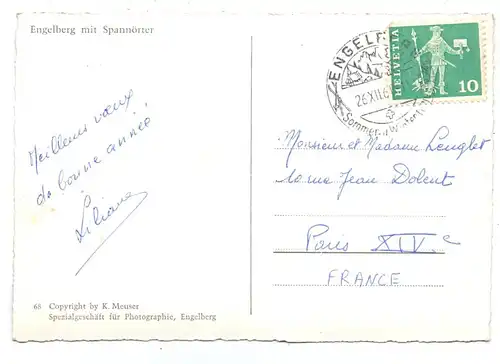 Engelberg mit Spannörter
ENGELB
26.XII.6
Sommer- u. Winter
HELVETIA
10
Meilleurs vœux
de bonne année
Liliane
Monsieur et Madame Lenglet
10 rue Jean Dolent
Paris XIV.e
FRANCE
68 Copyright by K. Meuser
Spezialgeschäft für Photographie, Engelberg